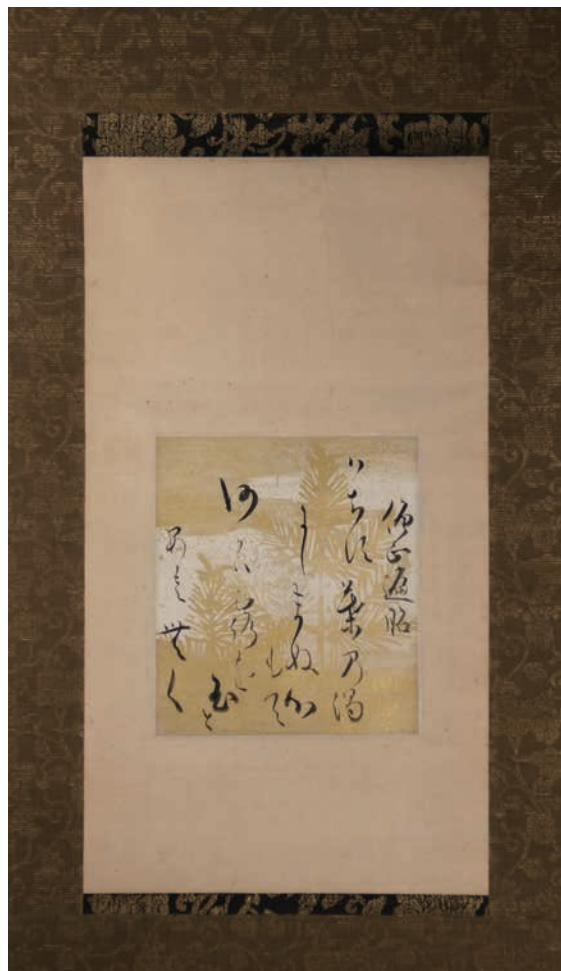 僧正遍昭
ハちす葉乃濁
りにしまぬ心
もて
何かハ露を
玉と
あさ無く